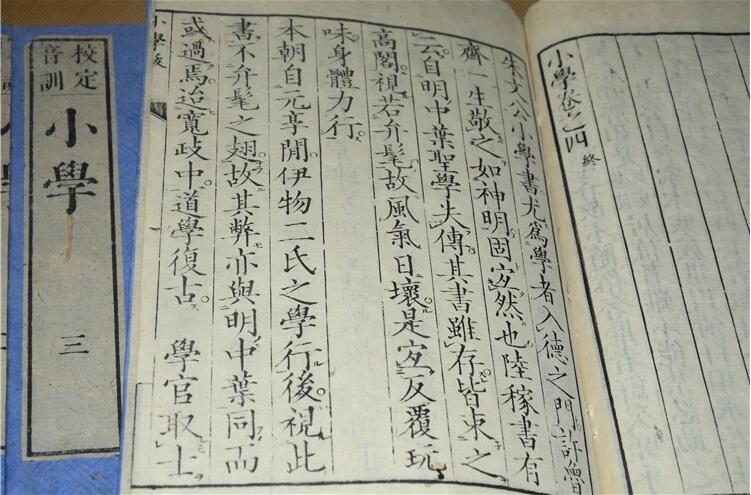 小學卷之四 終
朱文公小學書尤爲學者入德之門許魯
齋一生敬之如神明固宐然也陸稼書有
云自明中葉聖學失傳其書雖存皆束之
高閣視若弁髦故風氣日壞是宐反覆玩
味身體力行
本朝自元享閒伊物二氏之學行後視此
書不弁髦之翅故其弊亦與明中葉同而
或過焉迨寬政中道學復古 學官取士
小學跋
校定
音訓
小學
三